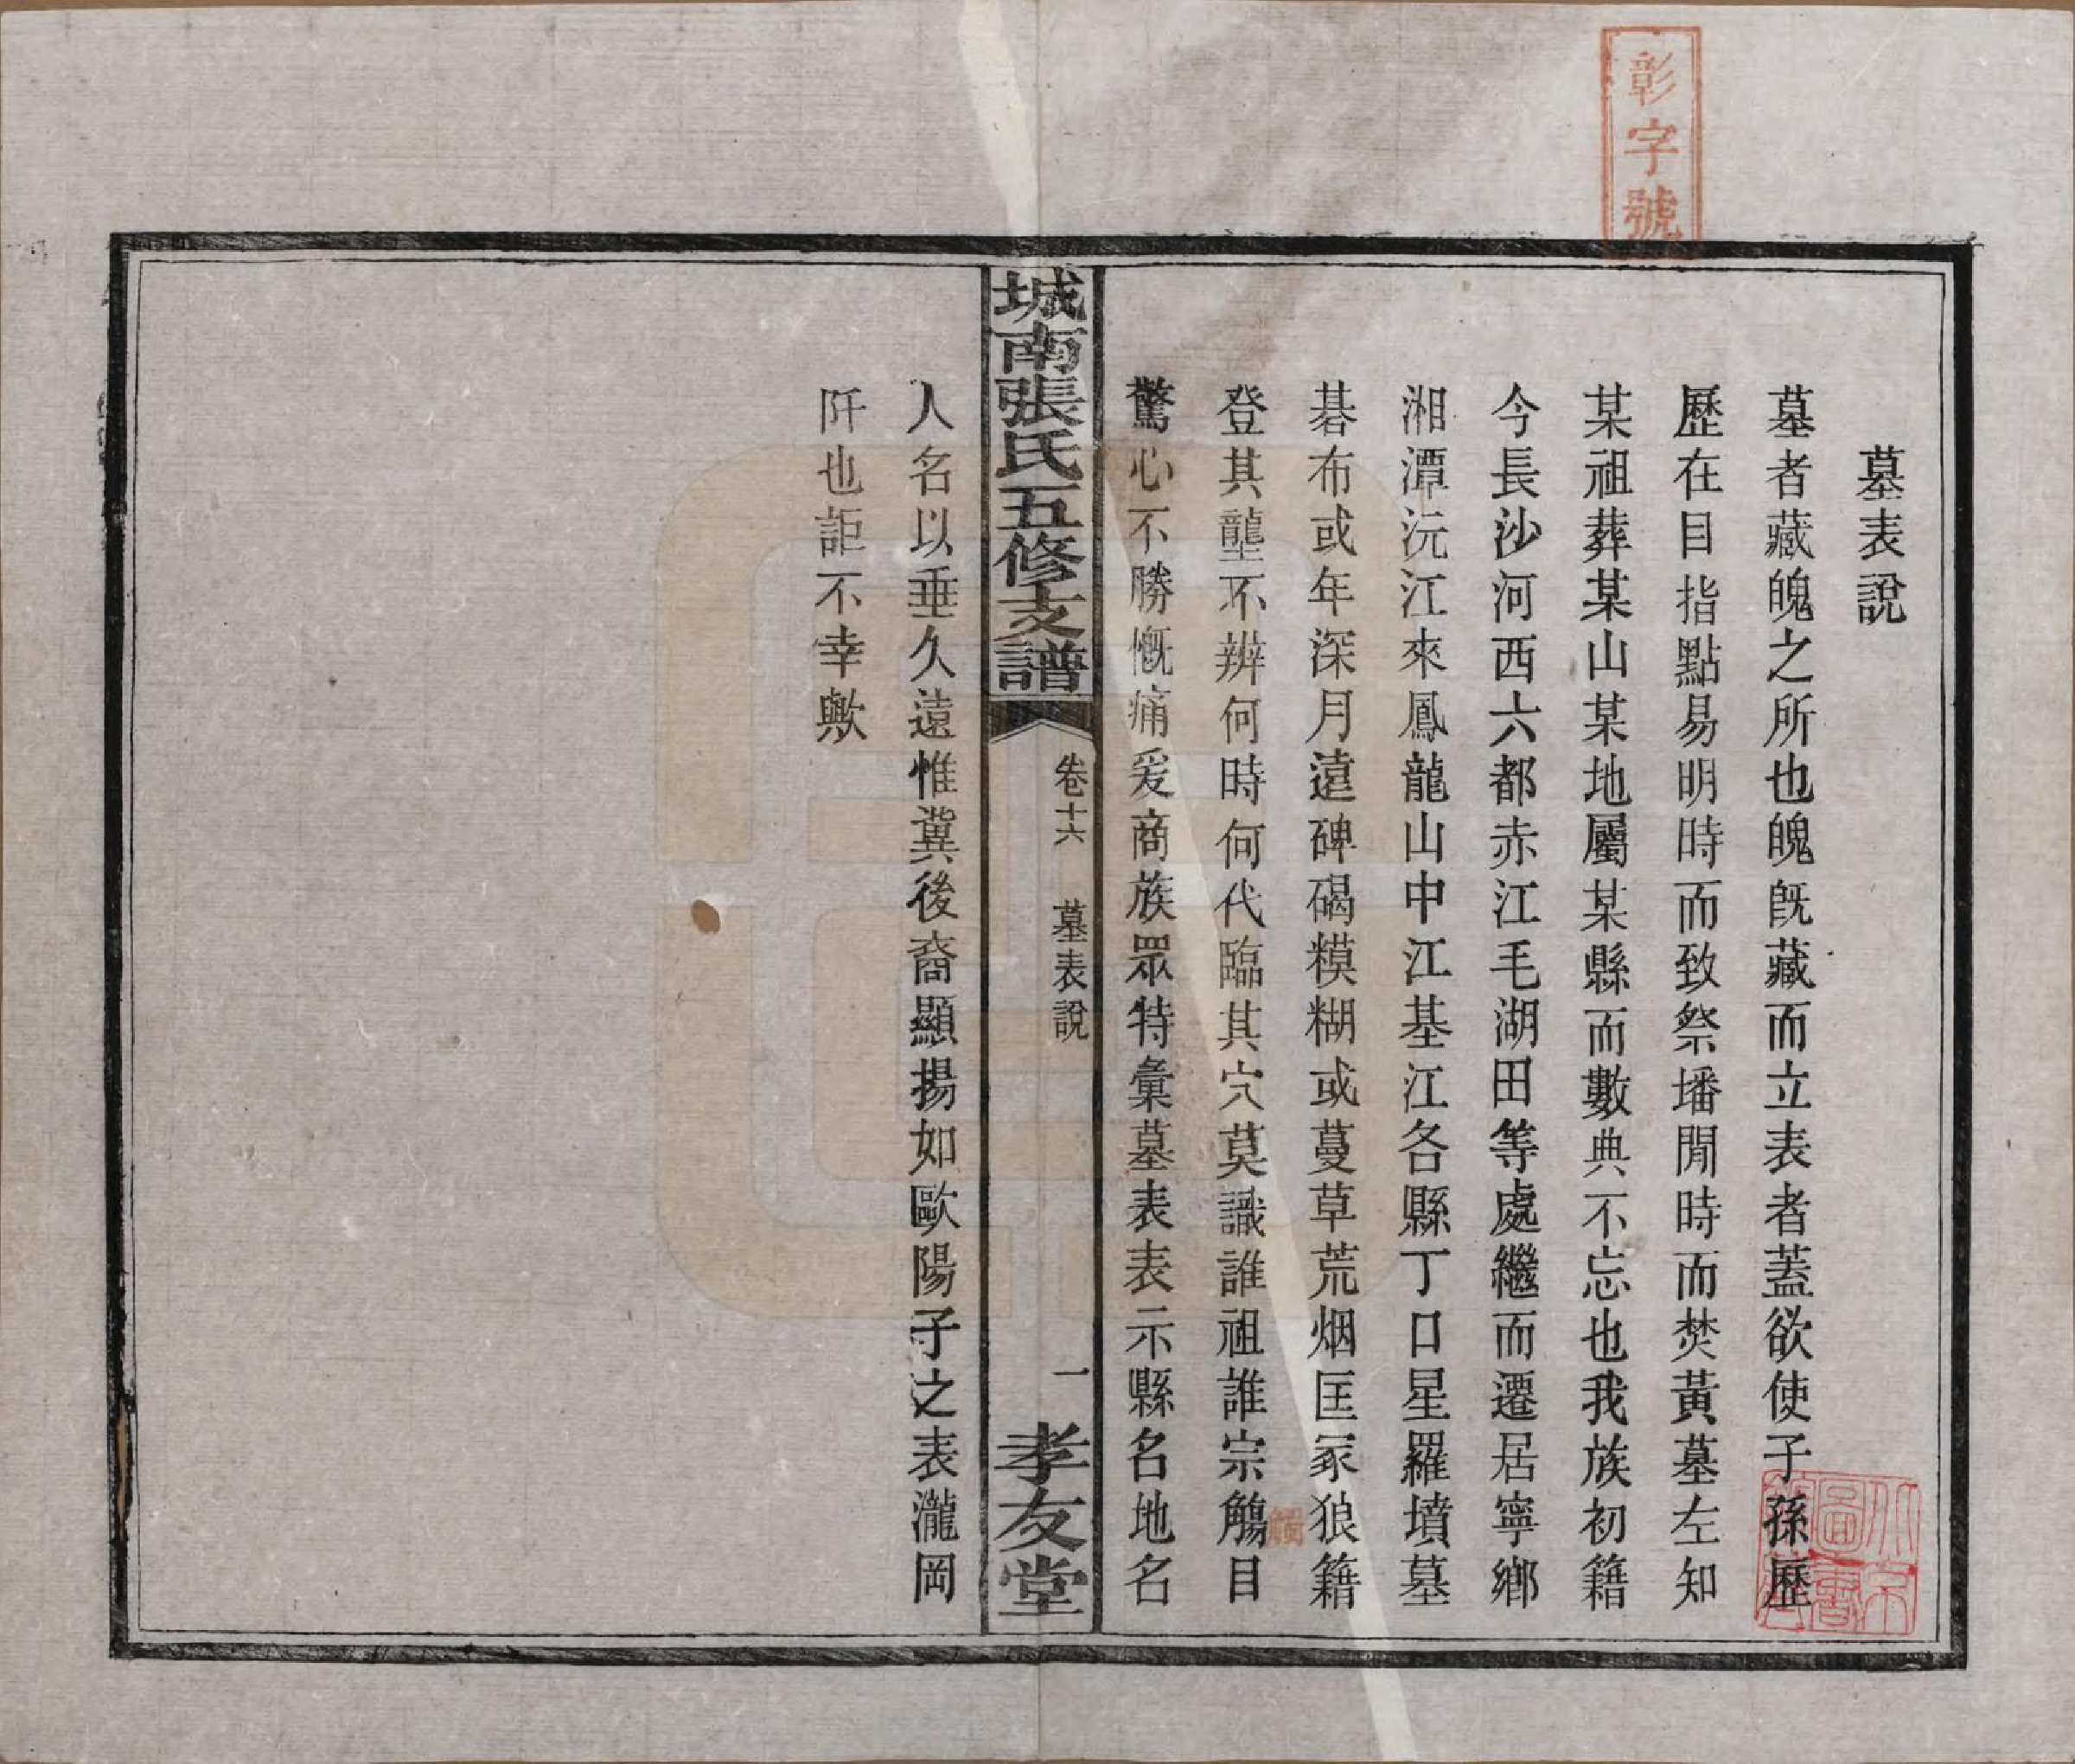 彰字號
墓表說
墓者藏魄之所也魄旣藏而立表者蓋欲使子孫歷
歷在目指點易明時而致祭墦閒時而焚黃墓左知
某祖葬某山某地屬某縣而數典不忘也我族初籍
今長沙河西六都赤江毛湖田等處繼而遷居寧鄉
湘潭沅江來鳳龍山中江基江各縣丁口星羅墳墓
碁布或年深月遠碑碣糢糊或蔓草荒烟匡冢狼籍
登其壟不辨何時何代臨其穴莫識誰祖誰宗觴目
驚心不勝慨痛爰商族眾特彙墓表表示縣名地名
城南張氏五修支譜
卷十六
墓表說
一
孝友堂
人名以垂久遠惟冀後裔顯揚如歐陽子之表瀧岡
阡也詎不幸歟